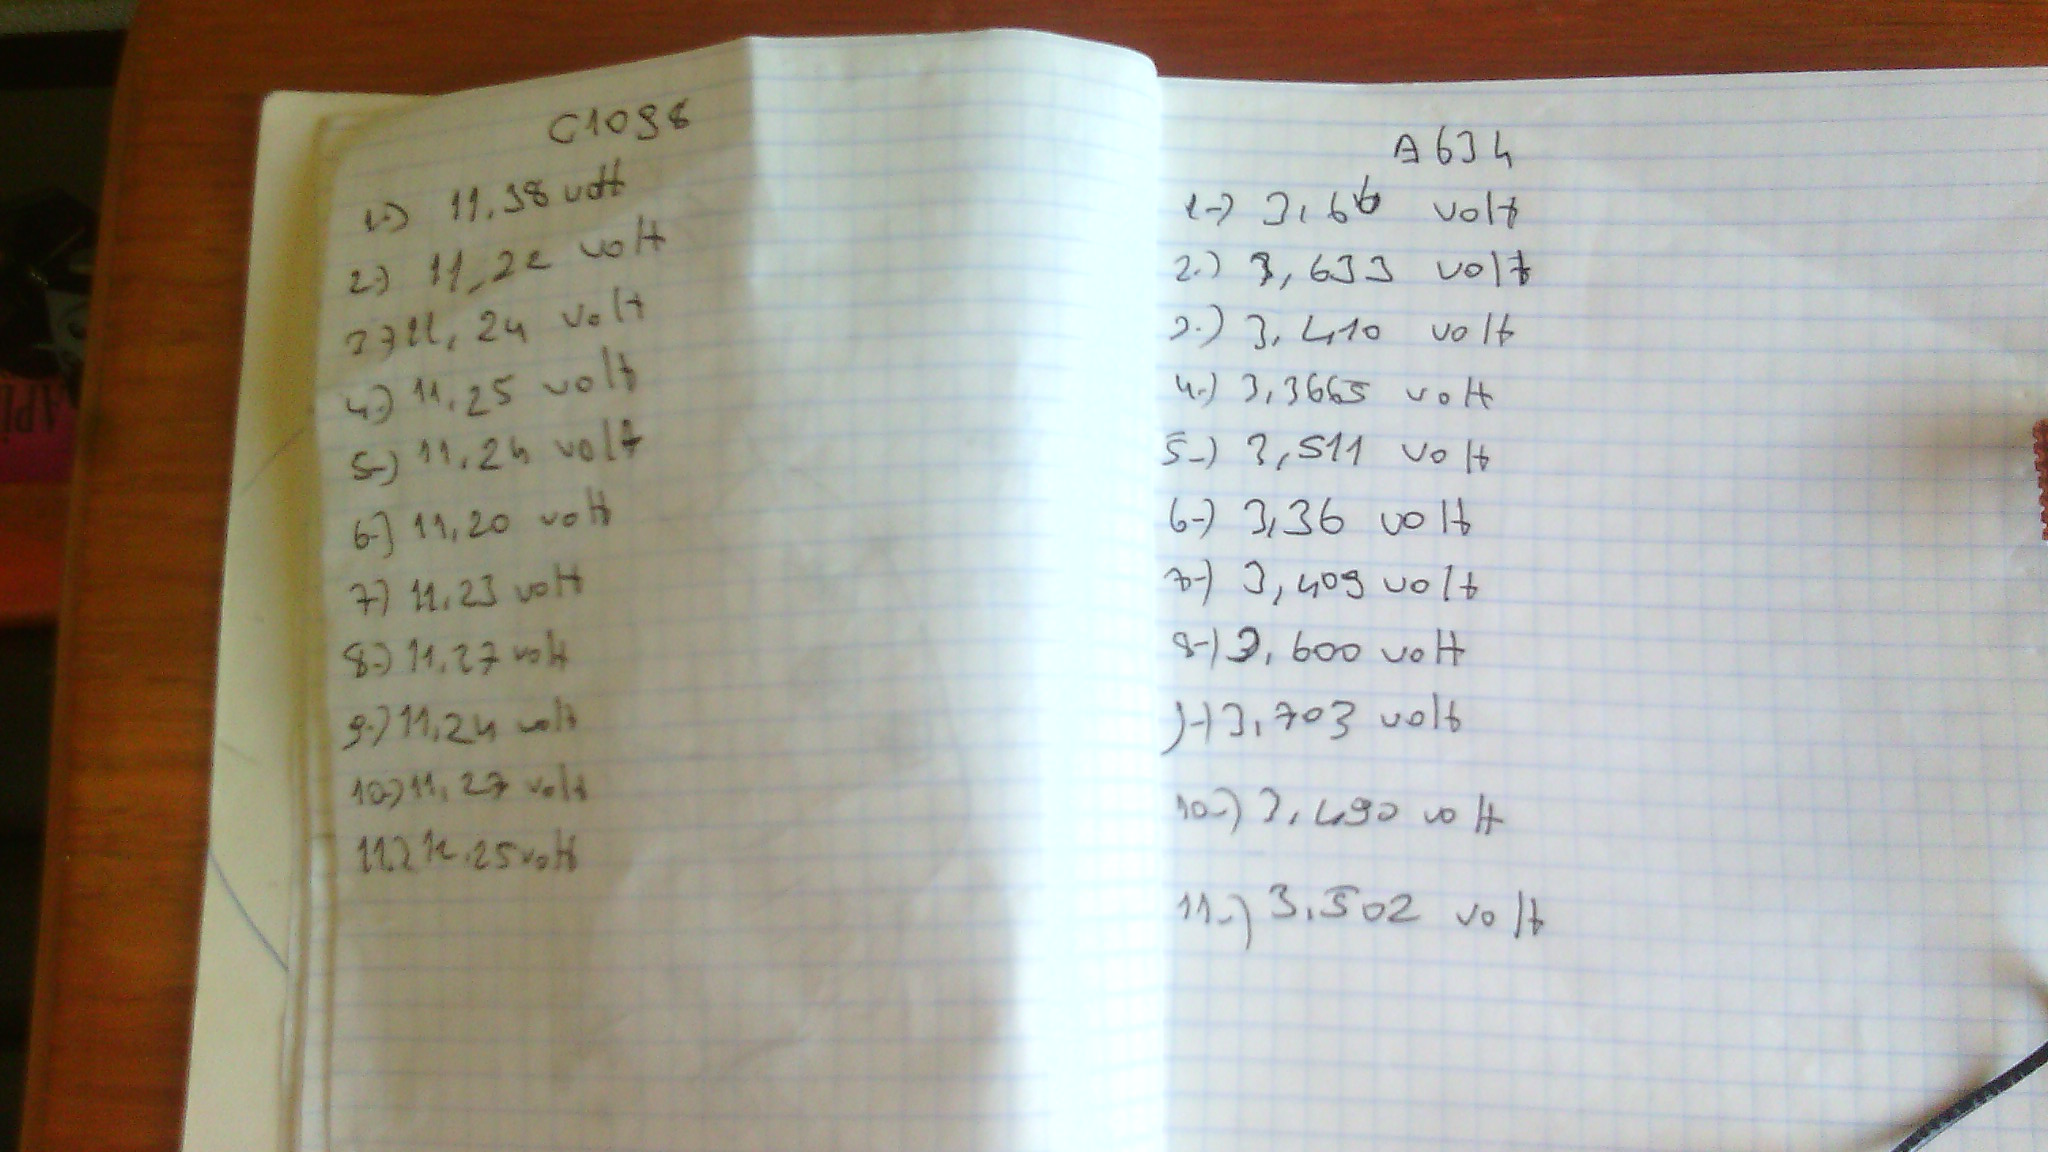 C1098
1-) 11.38 volt
2-) 11,22 volt
3-) 11, 24 volt
4-) 11.25 volt
5-) 11.24 volt
6-) 11,20 volt
7-) 11.23 volt
8-) 11.27 volt
9-) 11,24 volt
10-) 11, 27 volt
11-) 11.25 volt
A634
1-) 3,66 volt
2-) 3,633 volt
3-) 3,410 volt
4-) 3,3665 volt
5-) 3,511 volt
6-) 3,36 volt
7-) 3,409 volt
8-) 3,600 volt
9-) 3,703 volt
10-) 3,490 volt
11-) 3.502 volt